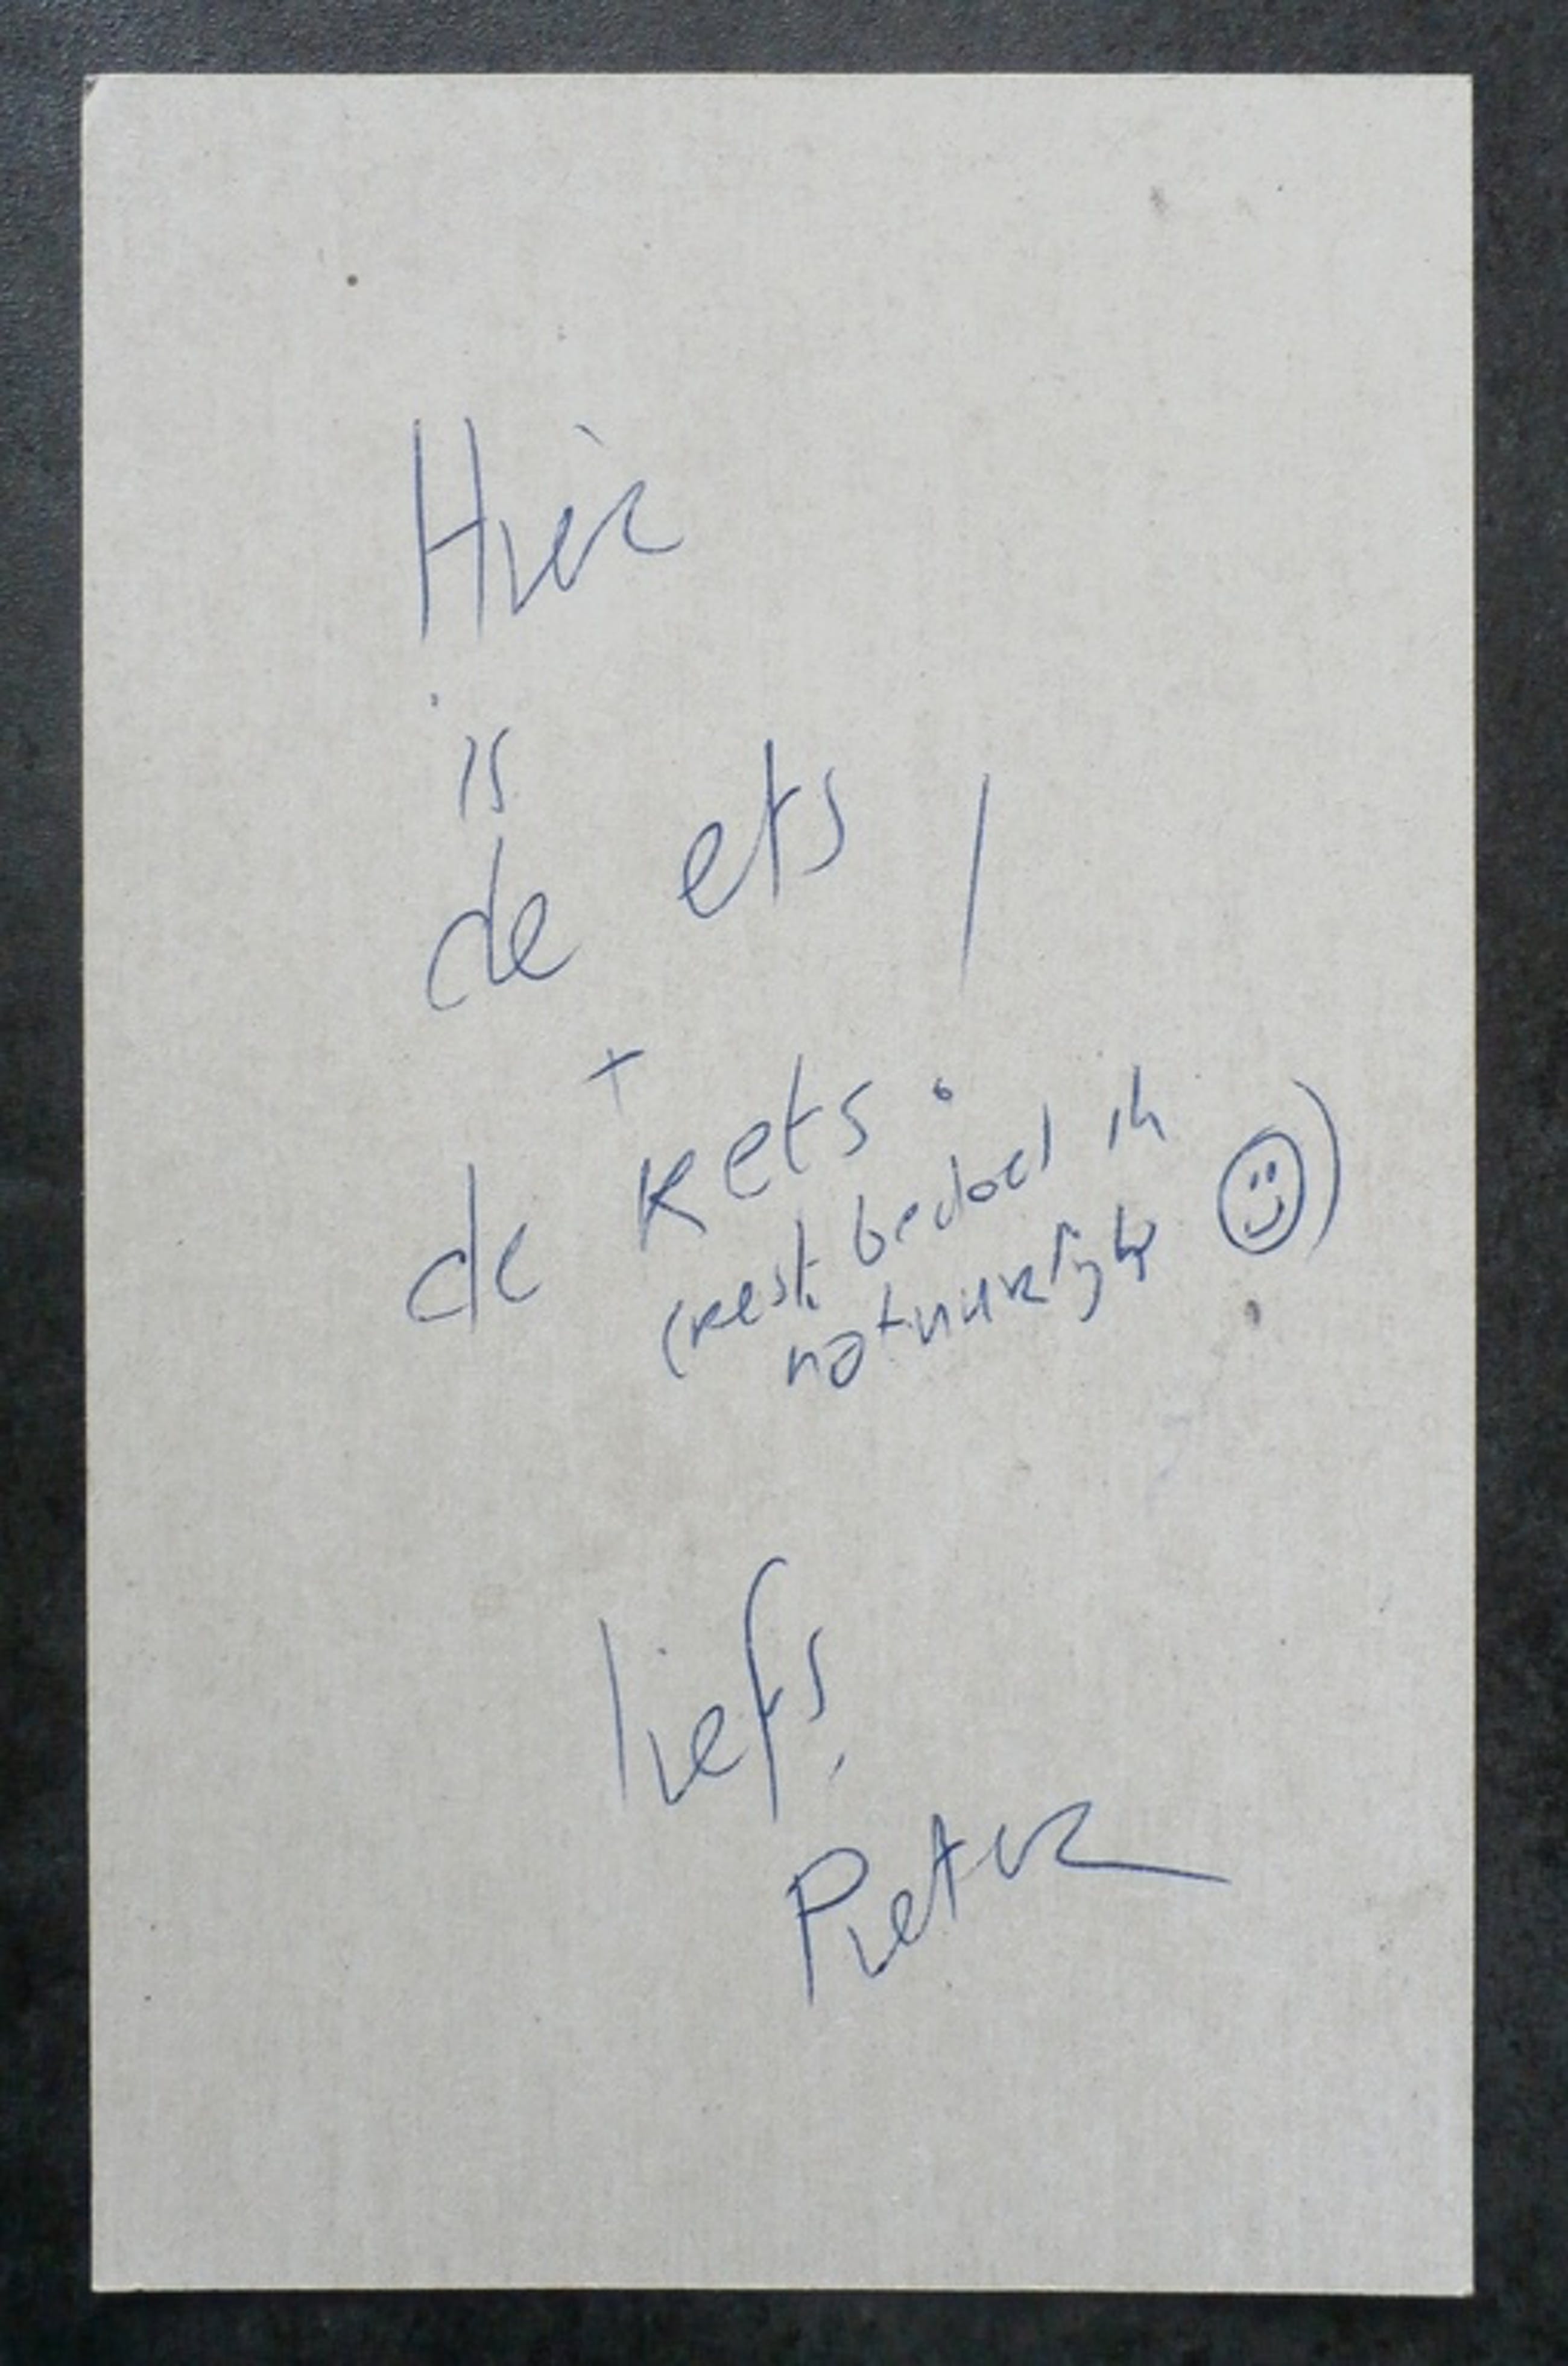 Hier
is
de ets !
+
de rets
(rest bedoel ik
natuurlijk ☺)
liefs,
Pieter